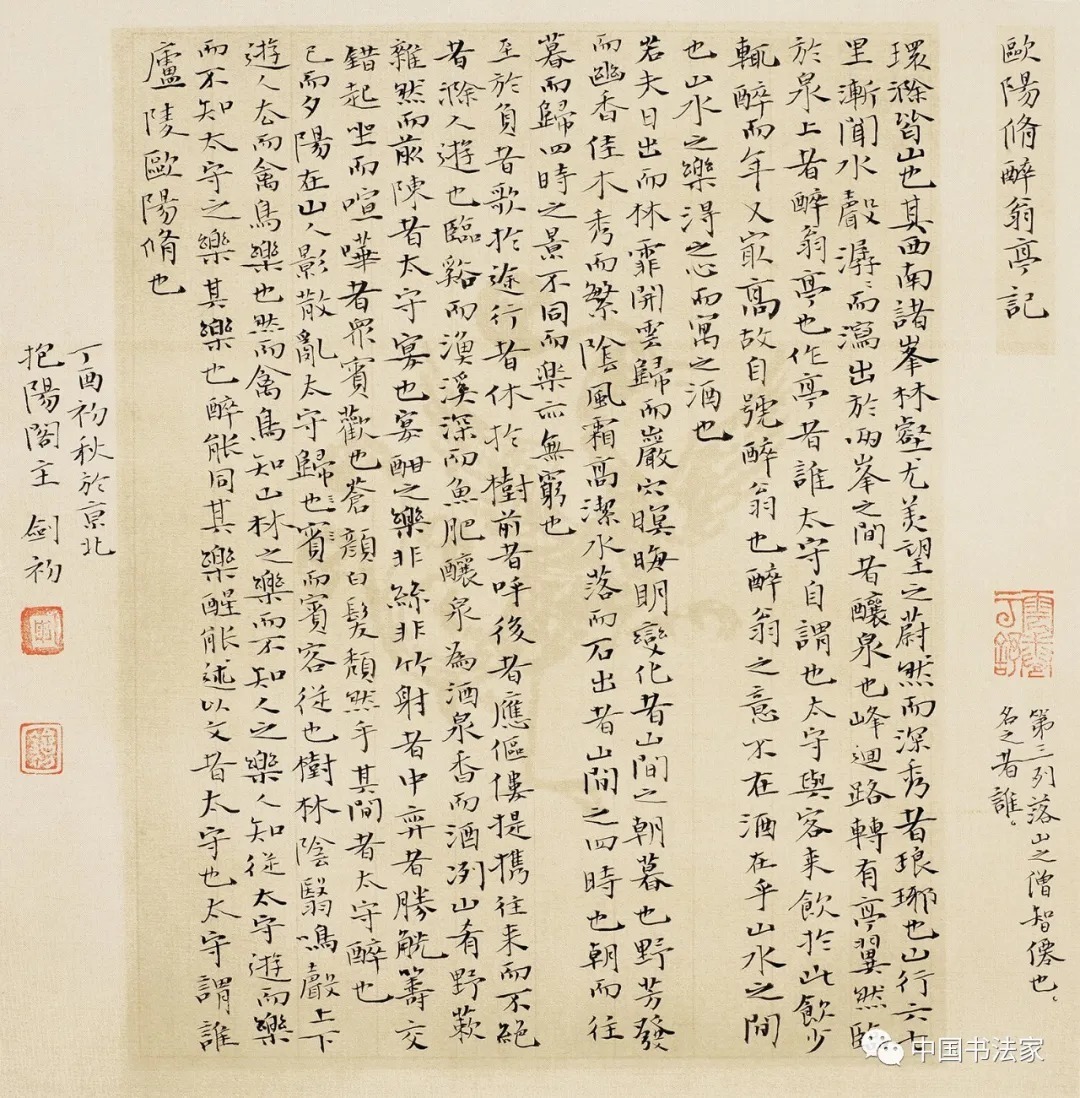 歐陽脩醉翁亭記
第三列落山之僧智僊也
名之者誰
環滁皆山也其西南諸峯林壑尤美望之蔚然而深秀者琅琊也山行六七
里漸聞水聲潺〻而瀉出於兩峯之間者釀泉也峰迴路轉有亭翼然臨
於泉上者醉翁亭也作亭者誰太守自謂也太守與客来飲於此飲少
輒醉而年又冣高故自號醉翁也醉翁之意不在酒在乎山水之間
也山水之樂淂之心而寓之酒也
若夫日出而林霏開雲歸而巖穴暝晦明變化者山間之朝暮也野芳發
而幽香佳木秀而繁陰風霜高潔水落而石出者山間之四時也朝而往
暮而歸四時之景不同而樂亦無窮也
至於負者歌於途行者休於樹前者呼後者應傴僂提携往来而不絕
者滁人遊也臨谿而漁溪深而魚肥釀泉為酒泉香而酒洌山肴野蔌
雜然而前陳者太守宴也宴酣之樂非絲非竹射者中弈者勝觥籌交
錯起坐而喧嘩者眾賓歡也蒼顏白髮頹然乎其間者太守醉也
已而夕陽在山人影散亂太守歸也賓而賓客從也樹林陰翳鳴聲上下
遊人去而禽鳥樂也然而禽鳥知山林之樂而不知人之樂人知從太守遊而樂
而不知太守之樂其樂也醉能同其樂醒能述以文者太守也太守謂誰
廬陵歐陽脩也
丁酉初秋於京北
抱陽閣主 劍初
中国书法家